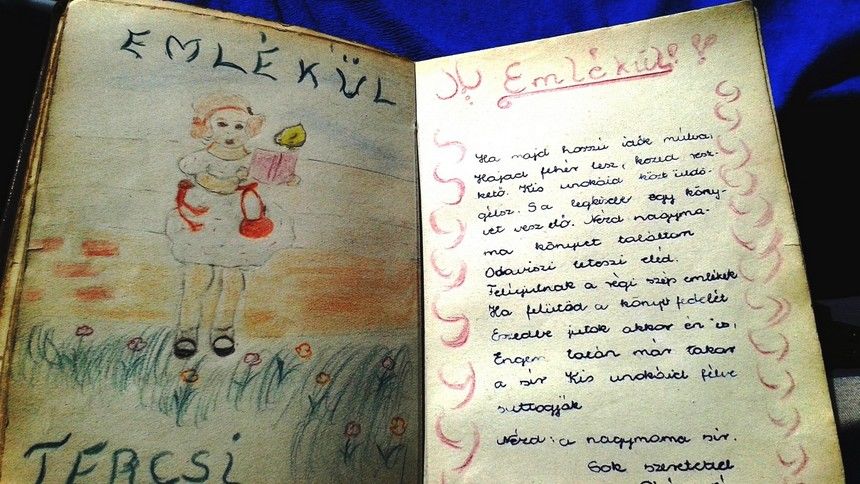 EMLÉKÜL
TERCSI
Emlékül!
Ha majd hosszú idők múlva,
Hajad fehér lesz, kezed resz-
kető. Kis unokáid közt üldö-
gélsz. S a legkisebb egy köny-
vet vesz elő. Nézd nagyma-
ma könyvet találtam
Odaviszi leteszi eléd.
Felújulnak a régi szép emlékek
Ha felütöd a könyv fedelét
Eszedbe jutok akkor én is,
Engem talán már takar
a sír Kis unokáid félve
suttogják
Nézd: a nagymama sír.
Sok szeretettel